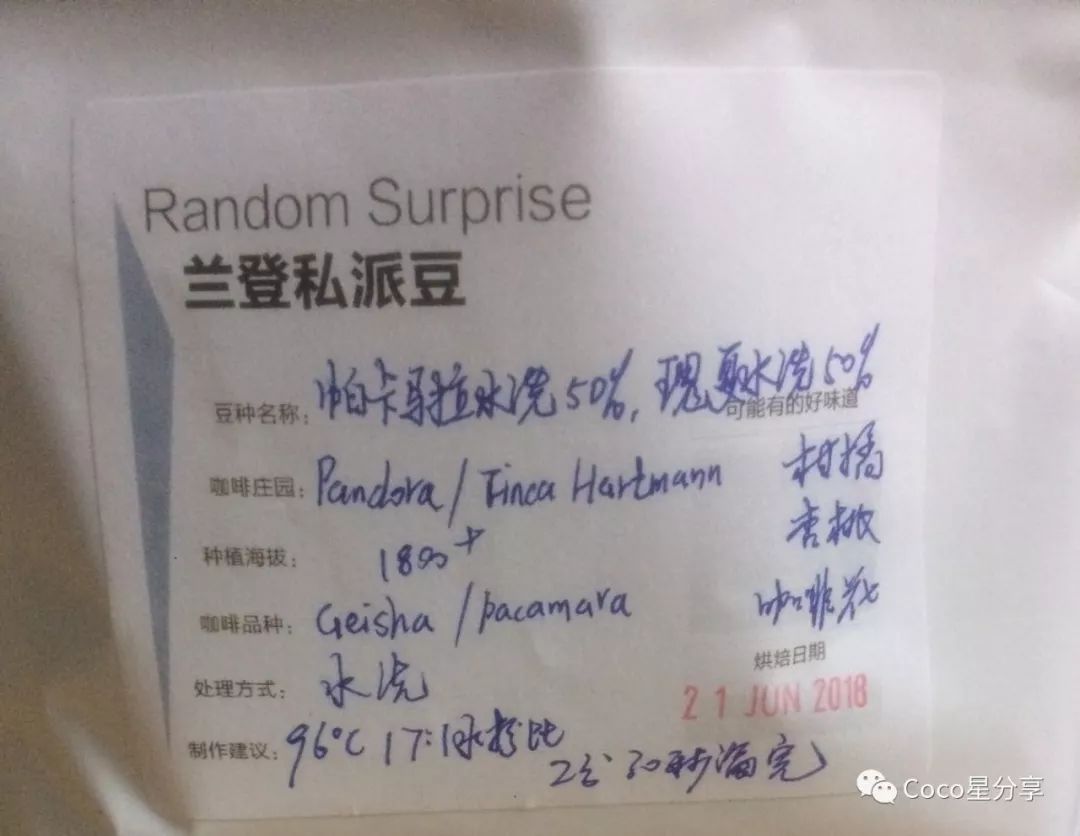 Random Surprise
兰登私派豆
豆种名称: 帕卡马拉水洗50%, 瑰夏水洗50%
可能有的好味道
咖啡庄园: Pandora / Finca Hartmann
柑橘
种植海拔: 1800+
杏桃
咖啡品种: Geisha / pacamara
咖啡花
处理方式: 水洗
烘焙日期
21 JUN 2018
制作建议: 96°C 17:1水粉比
2分30秒滴完
Coco星分享